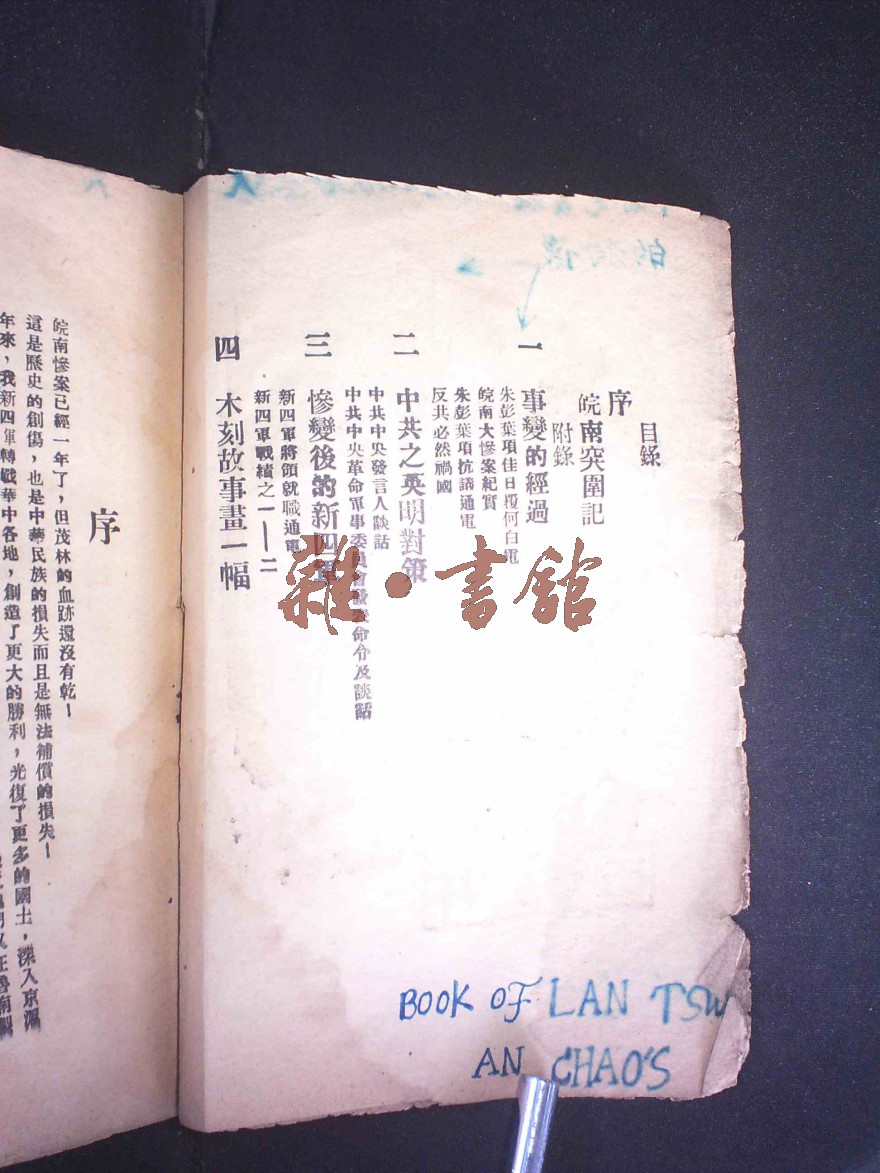 目錄
序
皖南突圍記
附錄
一 事變的經過
朱彭葉項佳日覆何白電
皖南大慘案紀實
朱彭葉項抗議通電
反共必然禍國
二 中共之英明對策
中共中央發言人談話
中共中央革命軍事委員會發表命令及談話
三 慘變後的新四軍
新四軍將領就職通電
新四軍戰績之一——二
四 木刻故事畫一幅
序
皖南慘案已經一年了,但茂林的血跡還沒有乾!
這是歷史的創傷,也是中華民族的損失而且是無法補償的損失!
年來,我新四軍轉戰華中各地,創造了更大的勝利,光復了更多的國土,深入京滬
雜·書館
BOOK OF LAN TSW
AN CHAO'S